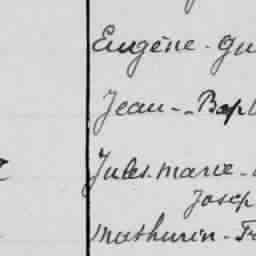 Eugène - Gu
Jean - Bapt
Jules. Marie -
Josep
Mathurin - Fr